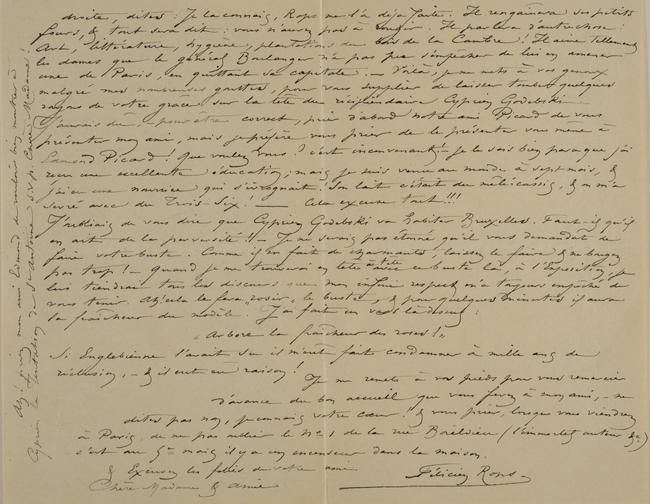 droite, dites : Je la connais, Rops me l'a déjà faite. Il rengainera ses petits
fours, & tout sera dit : vous n'aurez pas à rougir. Il parlera d'autre chose :
Art, littérature, hygiène, plantations du bois de la Cambre ! Il aime tellement
les dames que le général Boulanger n'a pas pu s'empêcher de lui en amener
une de Paris, en quittant sa capitale. – Voilà, je me mets à vos genoux
malgré mes nombreuses gouttes, pour vous supplier de laisser tomber quelques
rayons de votre grace sur la tête du récipiendaire Cyprien Godebski –
J'aurais dû, pour être correct, prier d'abord notre ami Picard de vous
présenter mon ami, mais je préfère vous prier de le présenter vous même à
Edmond Picard ! Que voulez vous ? c'est inconvenant ! je le sais bien parce que j'ai
reçu une excellente éducation ; mais je suis venu au monde à sept mois, &
j'ai eu une nourrice qui s'ivrognait ! Son lait c'était du mêlé-cassis, & on m'a
sevré avec du Trois-Six ! — Cela excuse tout !!!
J'oubliais de vous dire que Cyprien Godebski va habiter Bruxelles. Faut-il qu'il
en ait de la perversité !! – Je ne serais pas étonné qu'il vous demandât de
faire votre buste. Comme il en fait de charmants, laissez le faire, & ne bougez
pas trop ! – Quand je me trouverai en tête à tête avec ce buste là, à l'Exposition, je
lui tiendrai tous les discours que mon respect m'a toujours empêché de
vous tenir. Ah ! cela le fera « rosir » le buste, & pour quelques minutes il aura
la fraîcheur du modèle. J'ai fait un vers là dessus :
« Arbore la fraîcheur des roses ! »
Si Englebienne l'avait su il m'eut fait condamner à mille ans de
réclusion, – & il eut eu raison !
Je me remets à vos pieds pour vous remercier
d'avance du bon accueil que vous ferez à mon ami, – ne
dites pas non, je connais votre cœur ! & vous prier, lorsque vous viendrez
à Paris, de ne pas oublier le No 1 de la rue Boïeldieu (l'immortel auteur &a)
c'est au 5e mais il y a un ascenseur dans la maison.
& Excusez les folies de votre ami
Chère Madame & amie
Félicien Rops
Ah ! priez mon ami Edmond de vouloir bien montrer à
Cyprien la tentation de St Antoine s.v.p. Chère Madame !